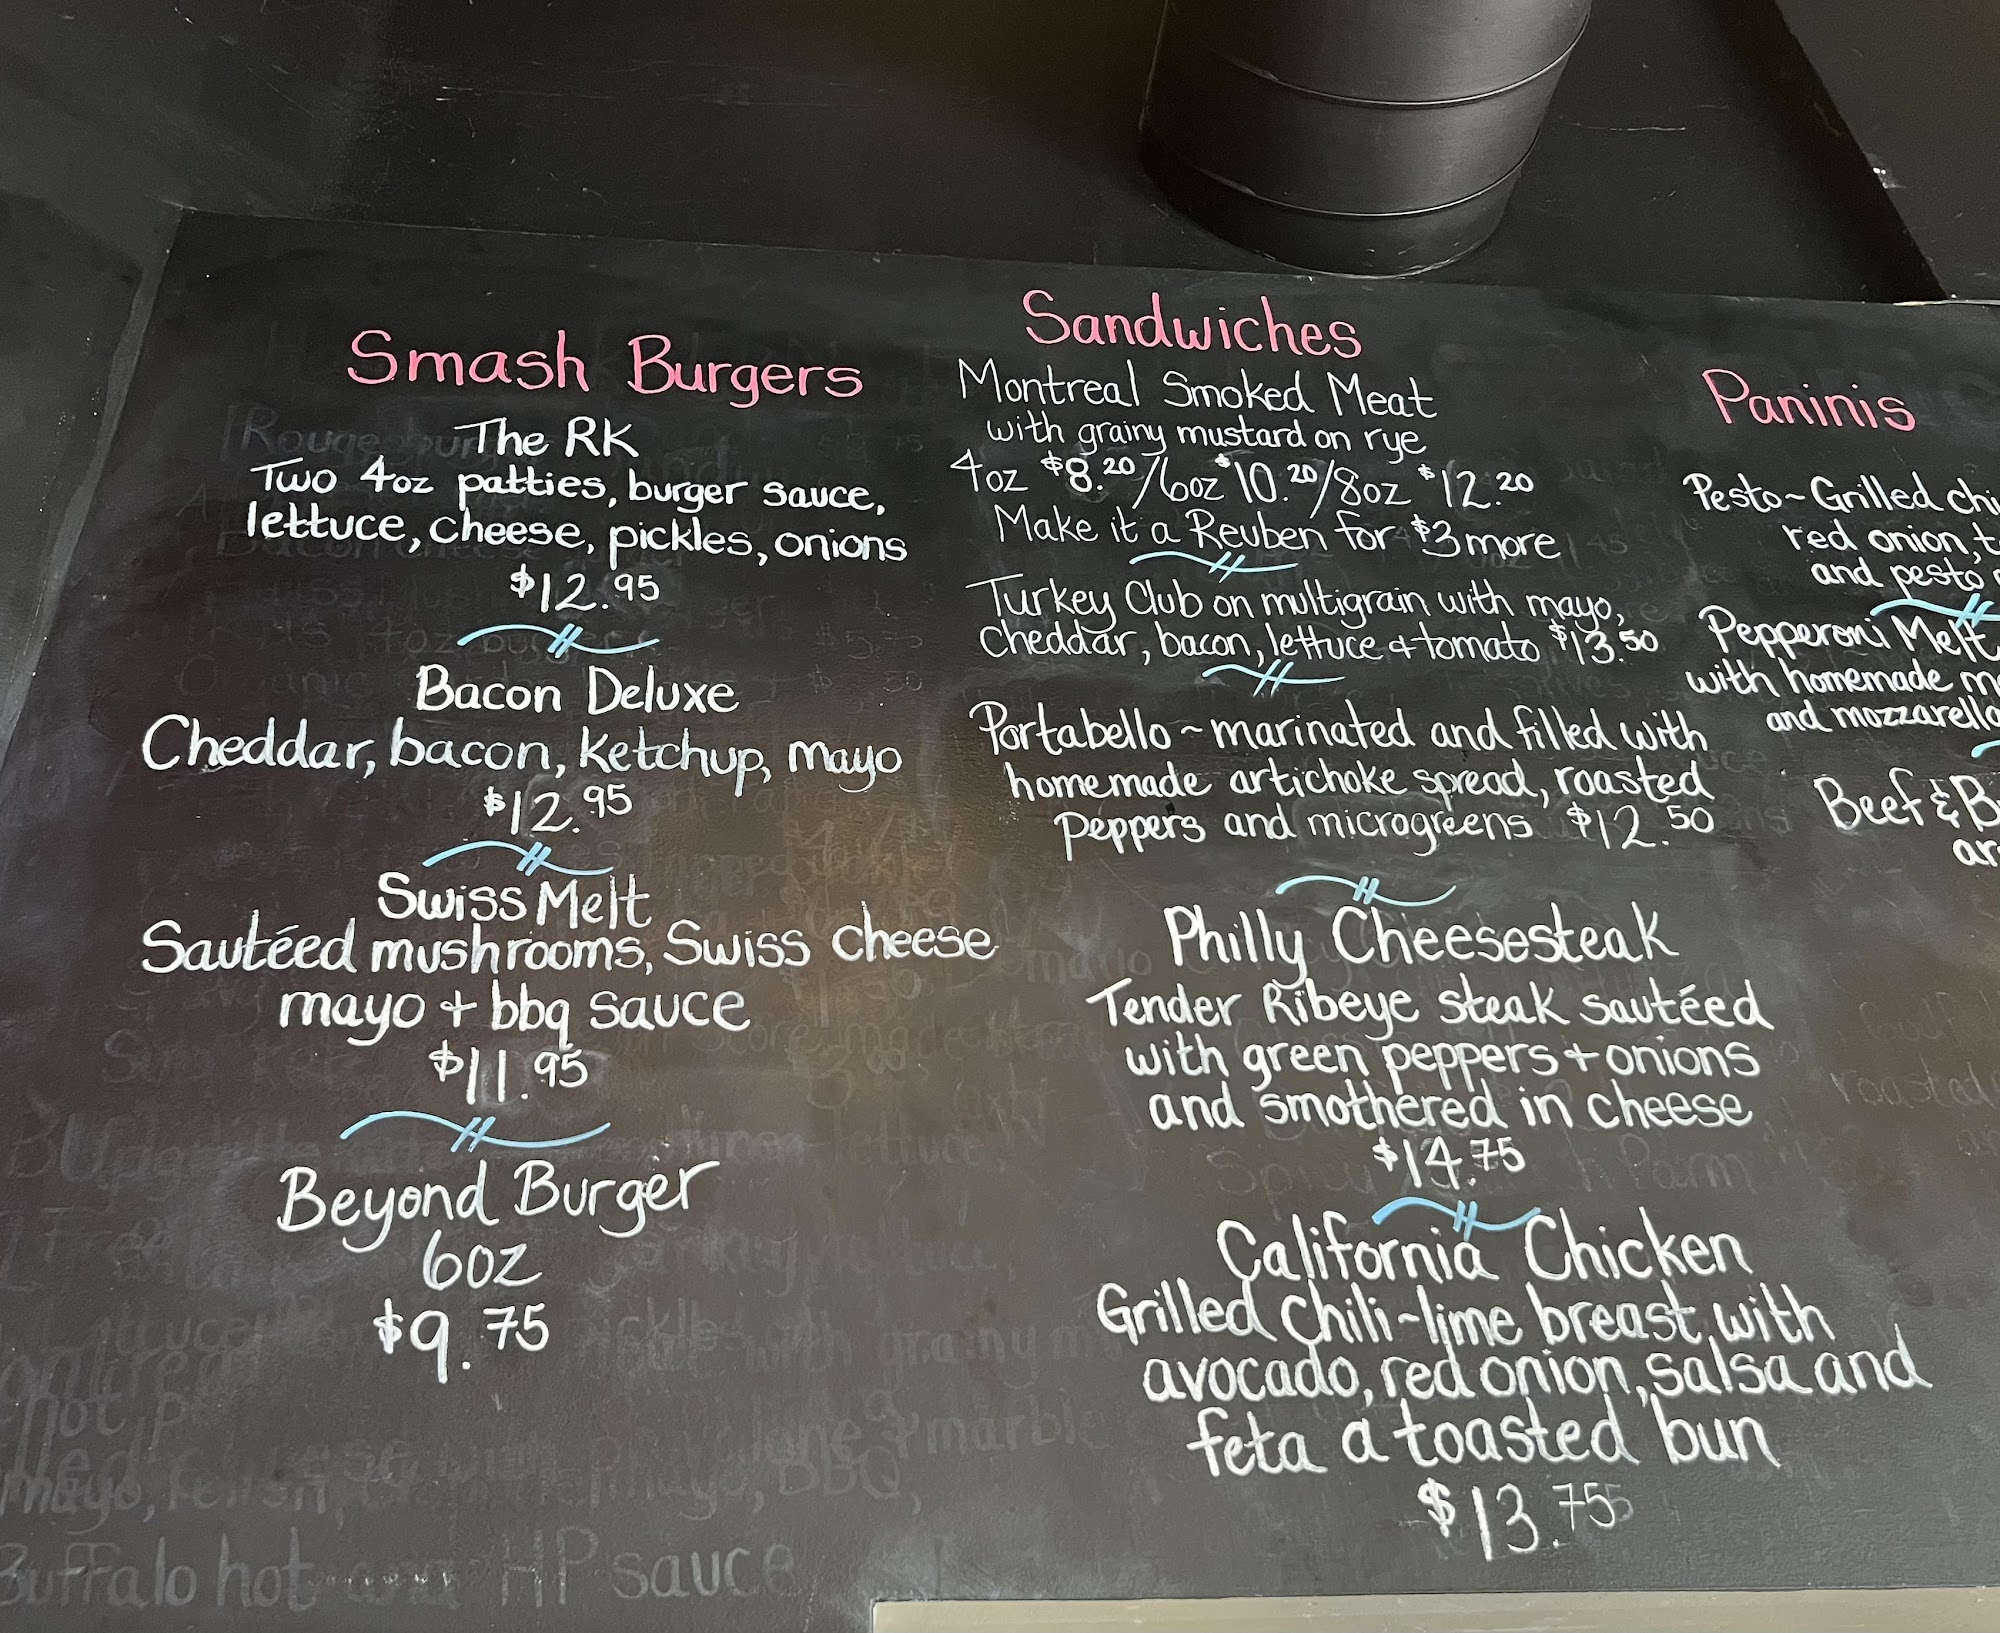 Smash Burgers
The RK
Two 4oz patties, burger sauce,
lettuce, cheese, pickles, onions
$12.95
Bacon Deluxe
Cheddar, bacon, ketchup, mayo
$12.95
Swiss Melt
Sautéed mushrooms, Swiss cheese
mayo + bbq sauce
$11.95
Beyond Burger
6oz
$9.75
Buffalo hot HP sauce
Sandwiches
Montreal Smoked Meat
with grainy mustard on rye
4oz $8.20/6oz $10.20/8oz $12.20
Make it a Reuben for $3 more
Turkey Club on multigrain with mayo,
cheddar, bacon, lettuce + tomato $13.50
Portabello ~ marinated and filled with
homemade artichoke spread, roasted
peppers and microgreens $12.50
Philly Cheesesteak
Tender Ribeye steak sautéed
with green peppers + onions
and smothered in cheese
$14.75
California Chicken
Grilled chili-lime breast, with
avocado, red onion, salsa and
feta a toasted bun
$13.75
Paninis
Pesto ~ Grilled
red onion,
and pesto
Pepperoni Melt
with homemade
and mozzarella
Beef &